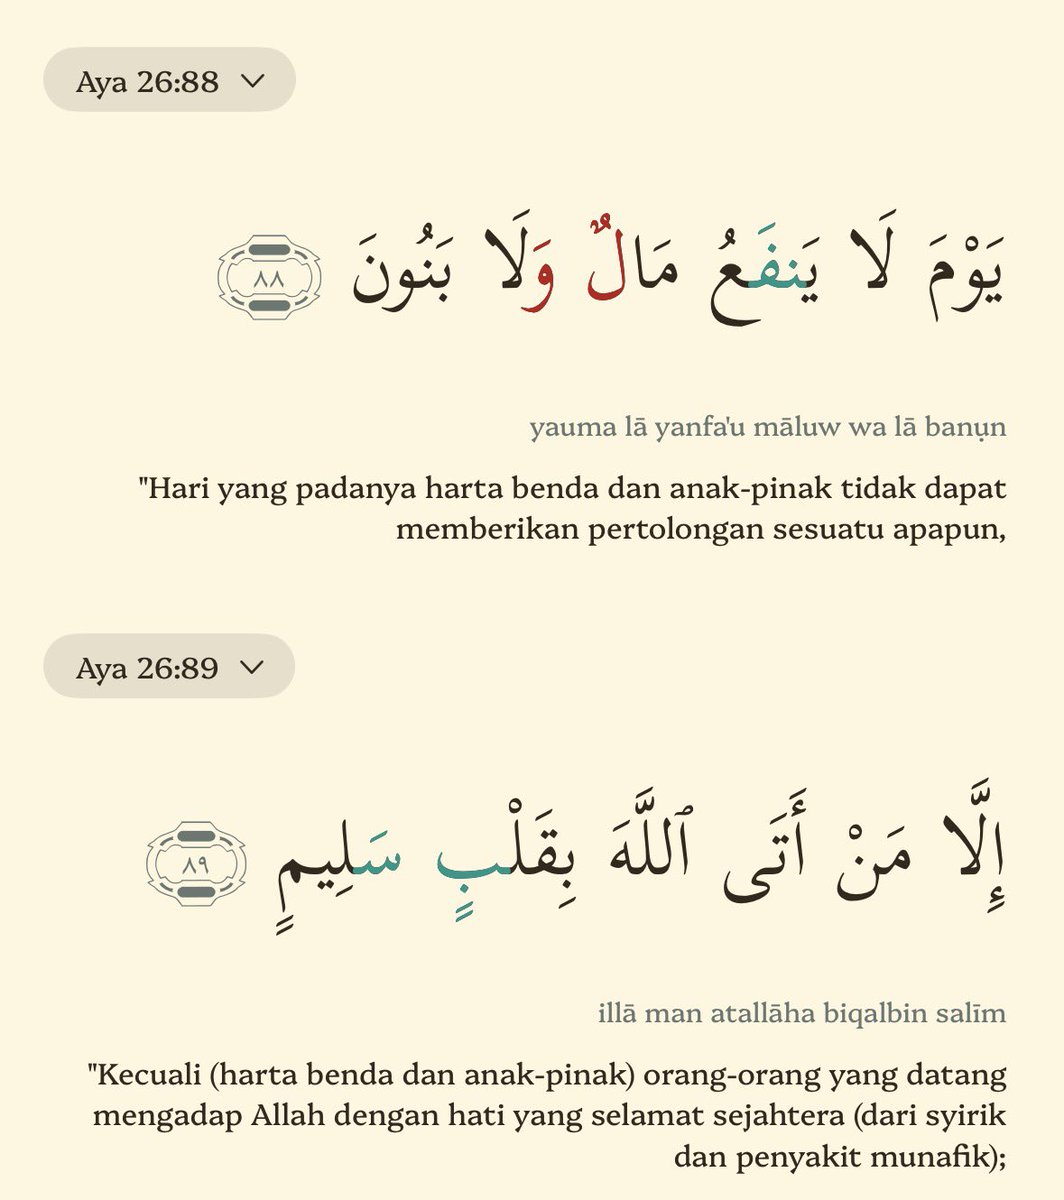 Aya 26:88
يَوْمَ لَا يَنفَعُ مَالٌ وَلَا بَنُونَ ٨٨
yauma lā yanfa'u māluw wa lā banụn
"Hari yang padanya harta benda dan anak-pinak tidak dapat
memberikan pertolongan sesuatu apapun,
Aya 26:89
إِلَّا مَنْ أَتَى ٱللَّهَ بِقَلْبٍ سَلِيمٍ ٨٩
illā man atallāha biqalbin salīm
"Kecuali (harta benda dan anak-pinak) orang-orang yang datang
mengadap Allah dengan hati yang selamat sejahtera (dari syirik
dan penyakit munafik);